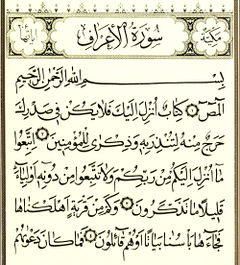 سورة الأعراف
بسم الله الرحمن الرحيم
المص ۝ كتاب أنزل إليك فلا يكن في صدرك
حرج منه لتنذر به وذكرى للمؤمنين ۝ اتبعوا
ما أنزل إليكم من ربكم ولا تتبعوا من دونه أولياء
قليلا ما تذكرون ۝ وكم من قرية أهلكناها
فجاءها بأسنا بياتا أو هم قائلون ۝ فما كان دعواهم